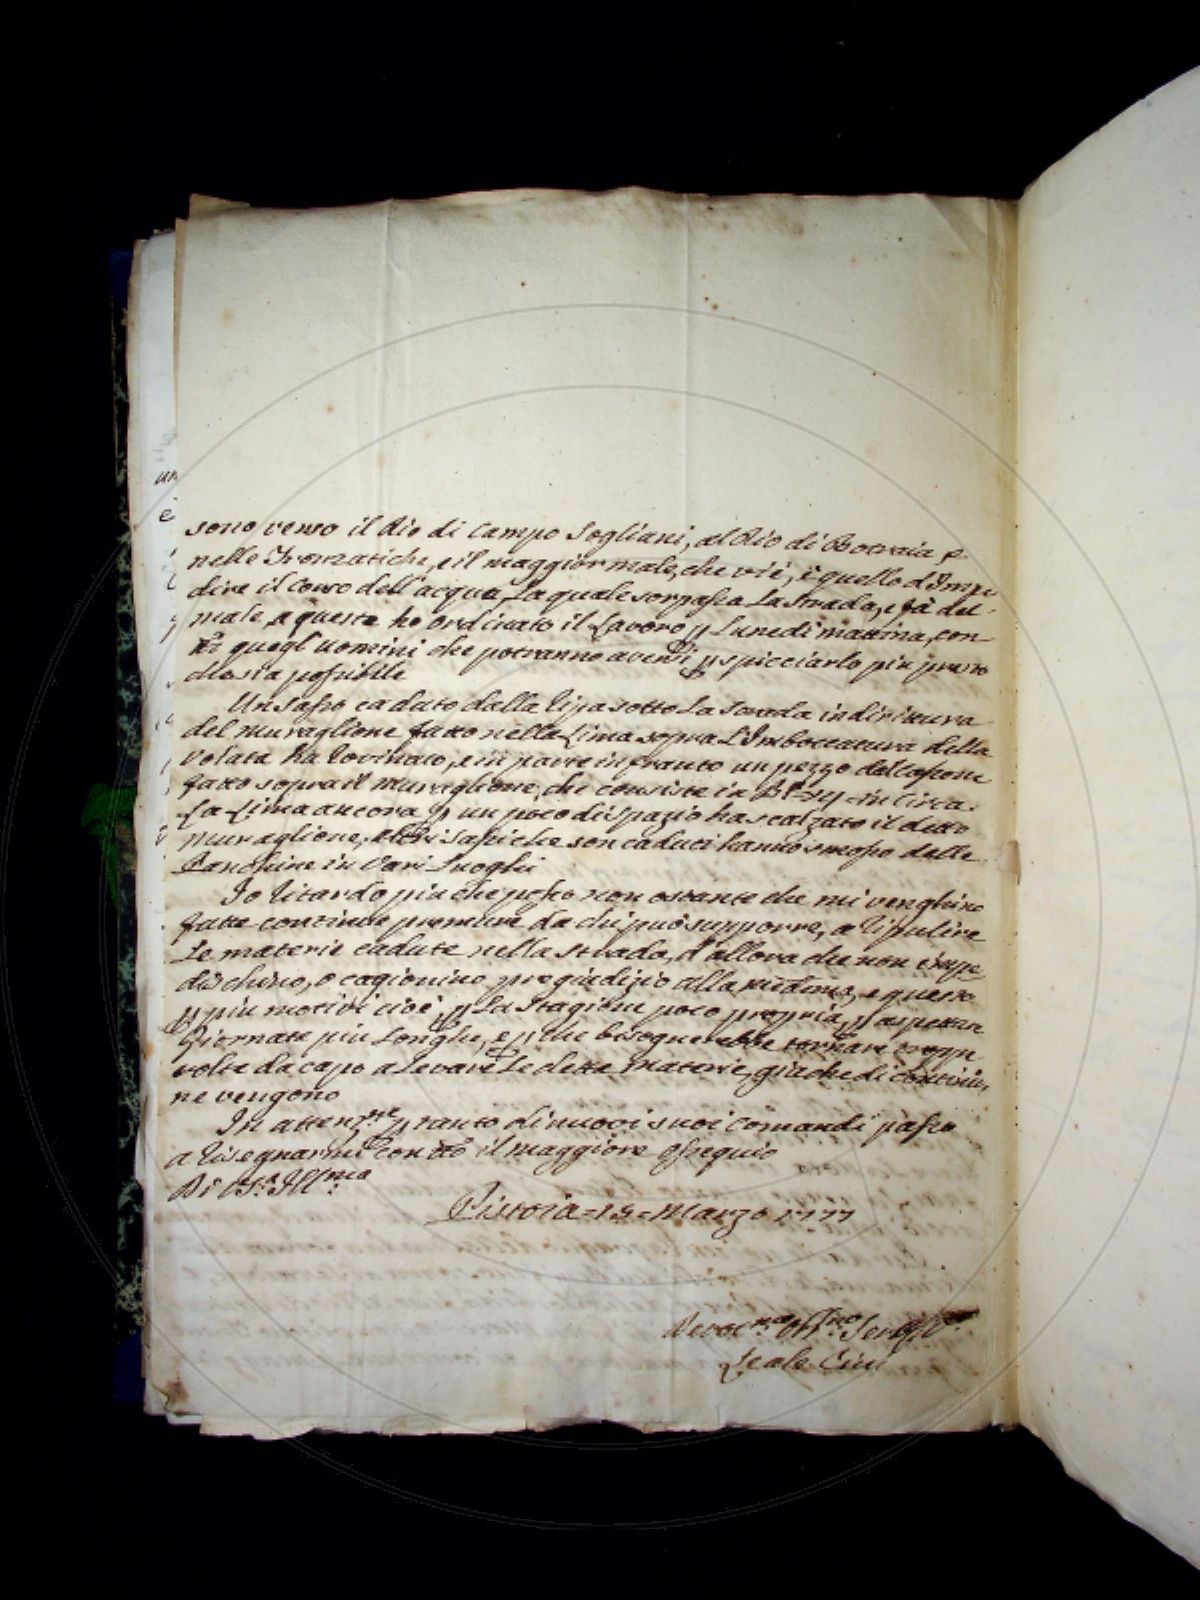 sono verso il Rio di Campo Sogliani, al Rio di Botraia e
nelle Tronzatiche, e il maggior male, che vi è, è quello d'Impe
dire il Corso dell'acqua, La quale sorpassa La Strada, e fà del
male, a questa ho ordinato il Lavoro p Lunedì mattina, con
tti quegl'uomini che potranno aversi p spicciarlo più presto
che sia possibile
Un Sasso caduto dalla Ripa sotto La Strada indirittura
del muraglione fatto nella Lima sopra L'Imboccatura della
Volata ha Rovinato, e in parte infranto un pezzo del
fatto sopra il Muraglione, che consiste in in Circa.
La Lima ancora p un poco di Spazio ha scalzato il detto
muraglione, altri Sassi che son caduti hanno smosso delle
Panchine in Vari Luoghi
Io Ritardo più che posso non ostante che mi venghino
fatte continue premure da chi può supporre, a Ripulire
Le materie cadute nella strada, d'allora che non impe
dischino, o cagionino pregiudizio alla medema, e questo
p più motivi cioè, p La Stagione poco propria, p aspettare
Giornate più Longhe, e p che bisognerebbe tornare troppe
volte da capo a Levare Le dette materie, giache di continuo
ne vengono
In attenzne p tanto di nuovi suoi comandi passo
a Risegnarmi con tto il maggiore Ossequio
Di VS. Illma
Pistoia = 15 = Marzo 1777
Devotmo Obbmo Serv
Leale Cini